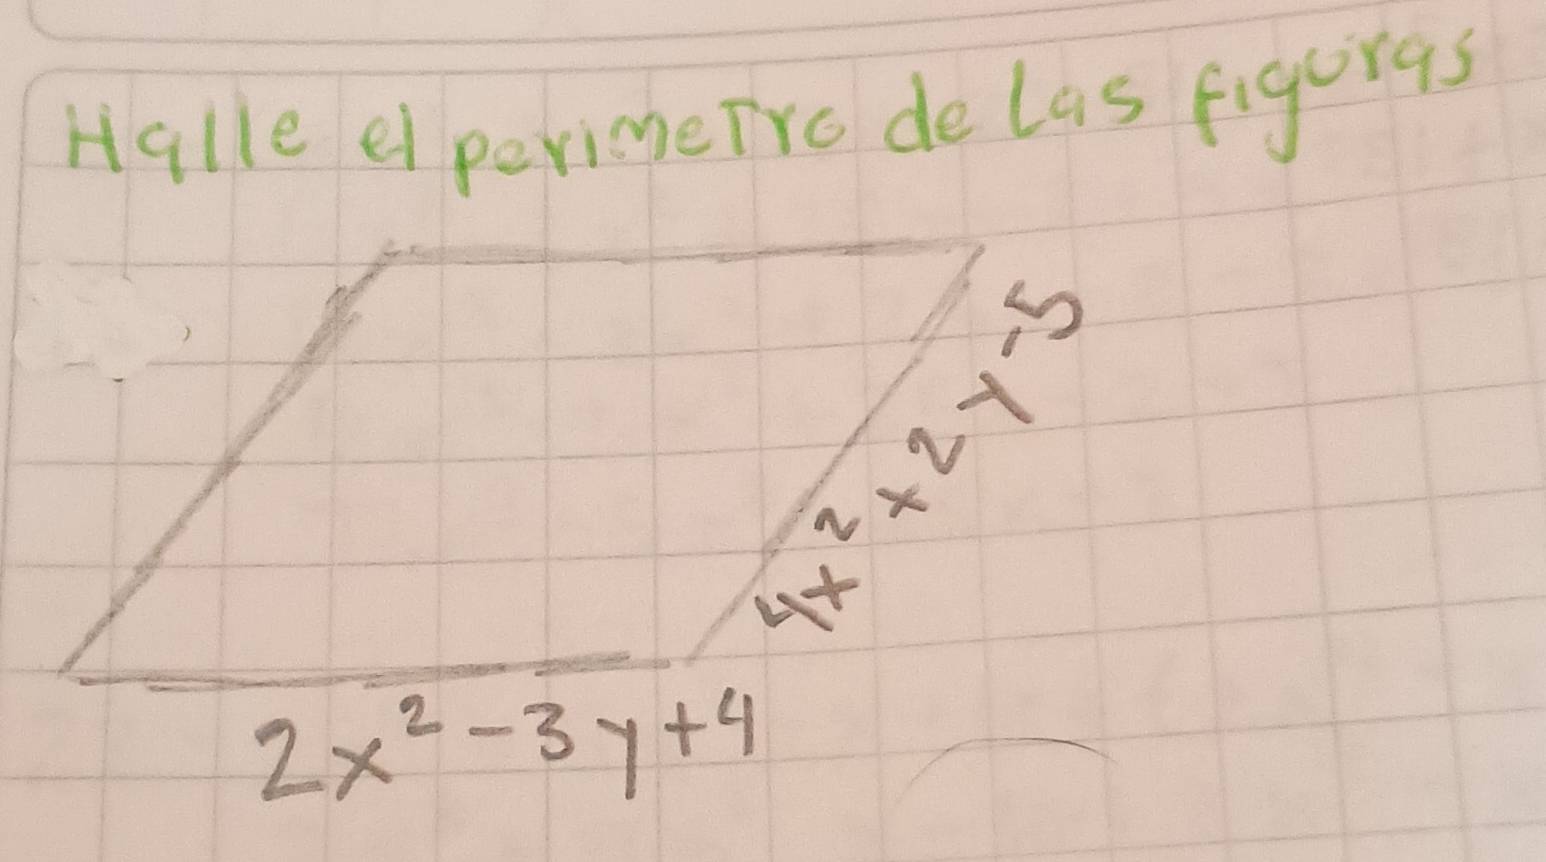 Halle el perimetro de las figuras
4x² x 2y -5
2x² - 3y + 4